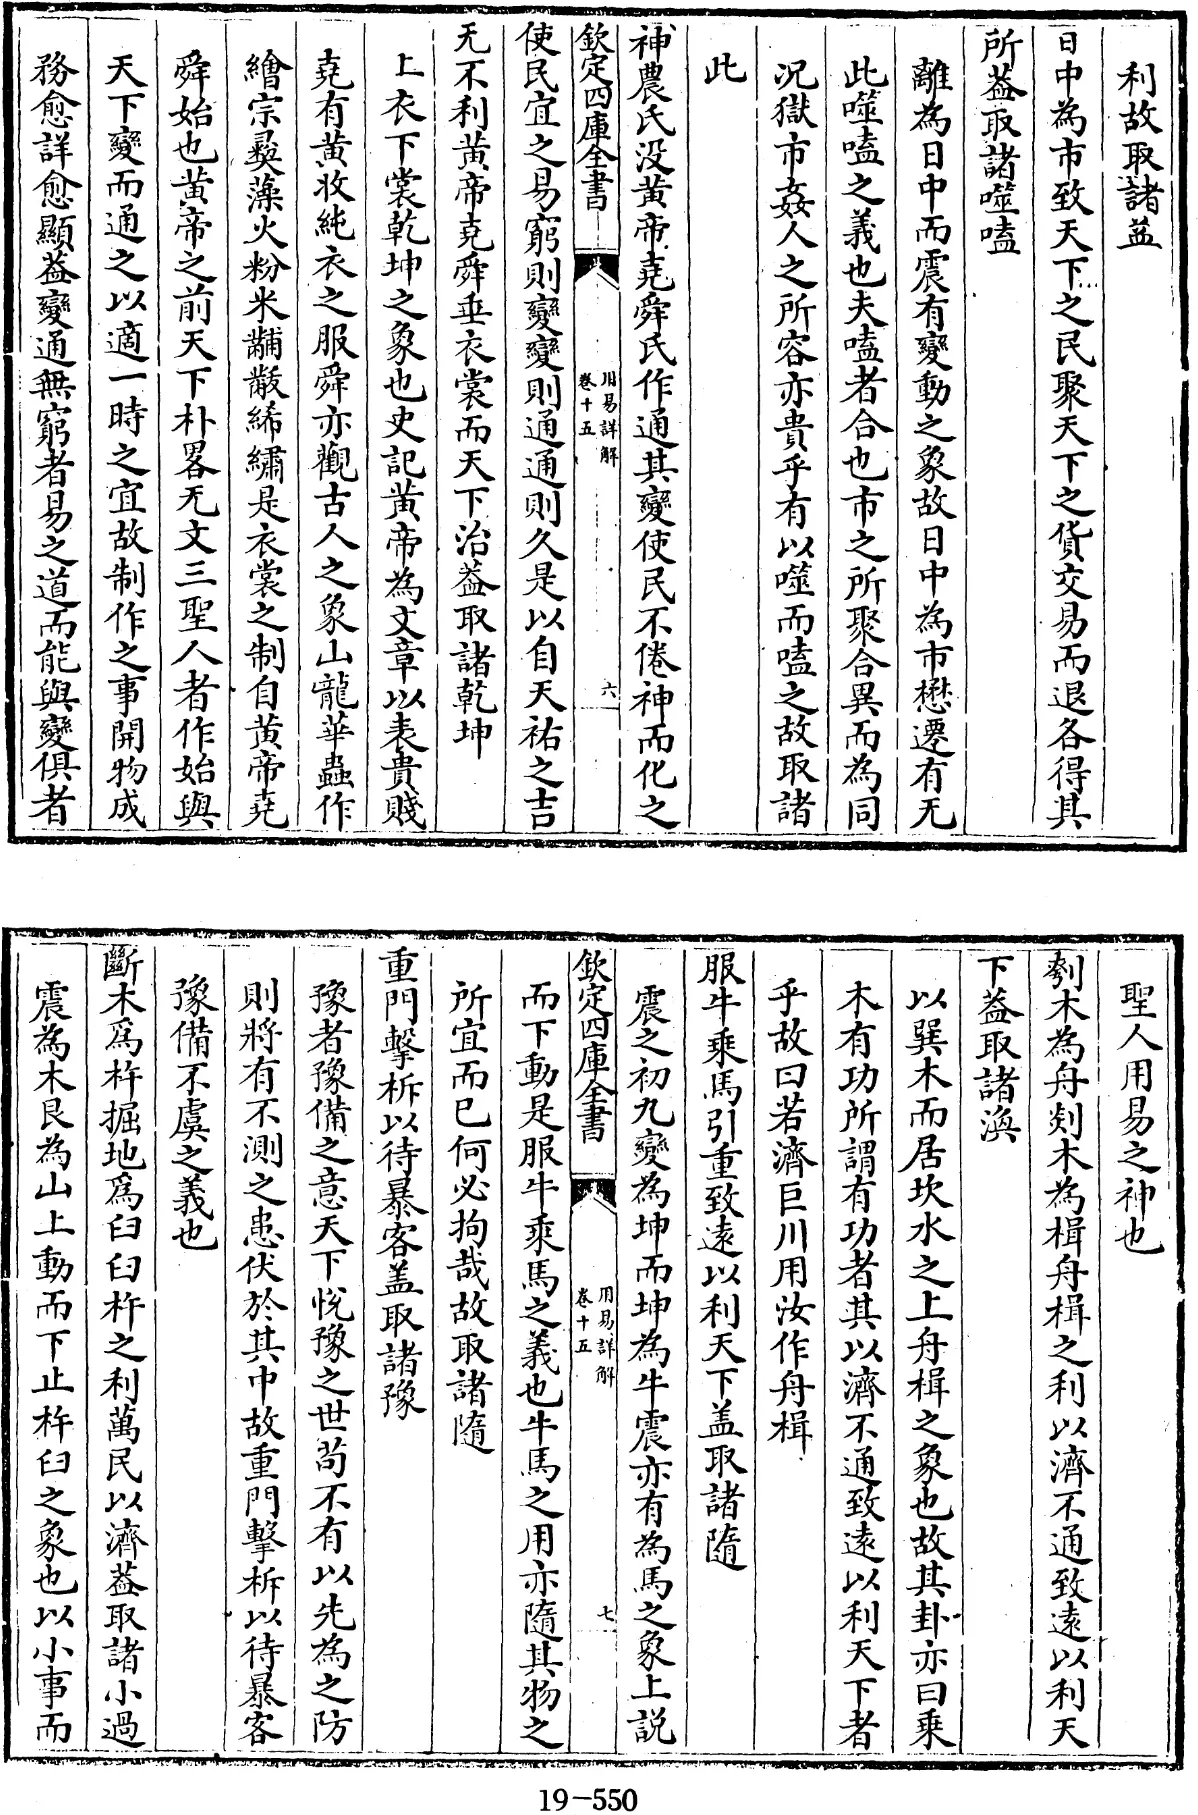 利故取諸益
日中為市致天下之民聚天下之貨交易而退各得其
所葢取諸噬嗑
離為日中而震有變動之象故日中為市懋遷有无
此噬嗑之義也夫嗑者合也市之所聚合異而為同
况獄市姦人之所容亦貴乎有以噬而嗑之故取諸
此
神農氏没黄帝堯舜氏作通其變使民不倦神而化之
欽定四庫全書
用易詳解
卷十五
六
使民宜之易窮則變變則通通則久是以自天祐之吉
无不利黄帝堯舜垂衣裳而天下治葢取諸乾坤
上衣下裳乾坤之象也史記黄帝為文章以表貴賤
堯有黄收純衣之服舜亦觀古人之象山龍華蟲作
繪宗彛藻火粉米黼黻絺繡是衣裳之制自黄帝堯
舜始也黄帝之前天下朴畧无文三聖人者作始與
天下變而通之以適一時之宜故制作之事開物成
務愈詳愈顯葢變通無窮者易之道而能與變俱者
聖人用易之神也
刳木為舟剡木為楫舟楫之利以濟不通致遠以利天
下葢取諸渙
以巽木而居坎水之上舟楫之象也故其卦亦曰乘
木有功所謂有功者其以濟不通致遠以利天下者
乎故曰若濟巨川用汝作舟楫
服牛乘馬引重致遠以利天下盖取諸隨
震之初九變為坤而坤為牛震亦有為馬之象上説
欽定四庫全書
用易詳解
卷十五
七
而下動是服牛乘馬之義也牛馬之用亦隨其物之
所宜而已何必拘哉故取諸隨
重門擊柝以待暴客盖取諸豫
豫者豫備之意天下悦豫之世茍不有以先為之防
則將有不測之患伏於其中故重門擊柝以待暴客
豫備不虞之義也
斷木爲杵掘地爲臼臼杵之利萬民以濟葢取諸小過
震為木艮為山上動而下止杵臼之象也以小事而
19-550